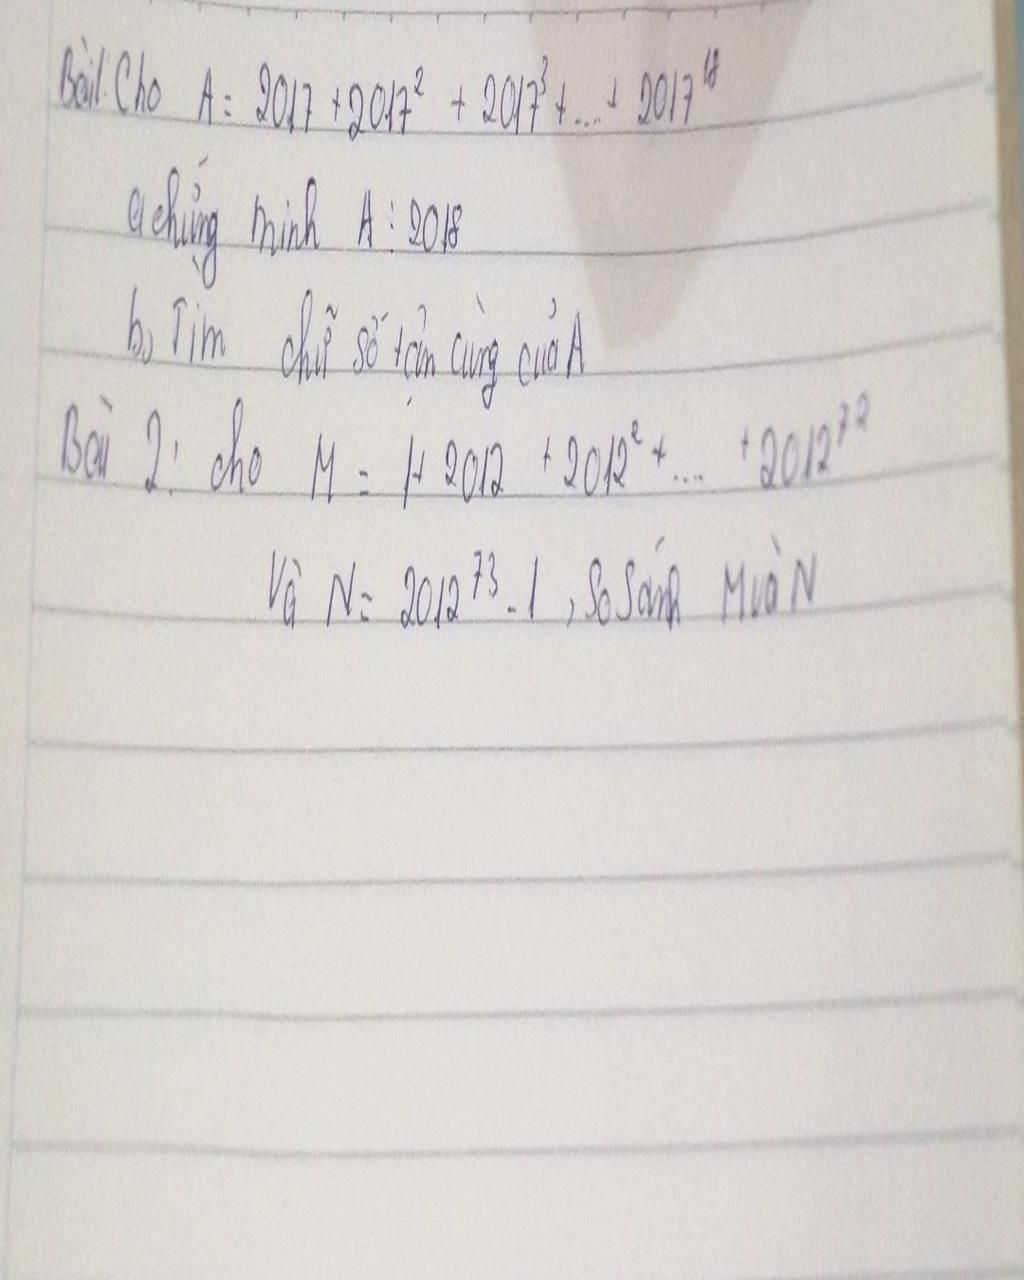 Bài 1: Cho A = 2017 + 2017² + 2017³ + .... + 2017¹⁸
a, chứng minh A ⋮ 2018
b, Tìm chữ số tận cùng của A
Bài 2: cho M = 1 + 2012 + 2012² + .... + 2012⁷²
Và N = 2012⁷³ - 1, So Sánh M và N